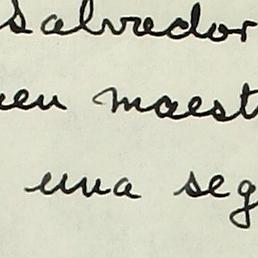 Salvador
en maest
una seg